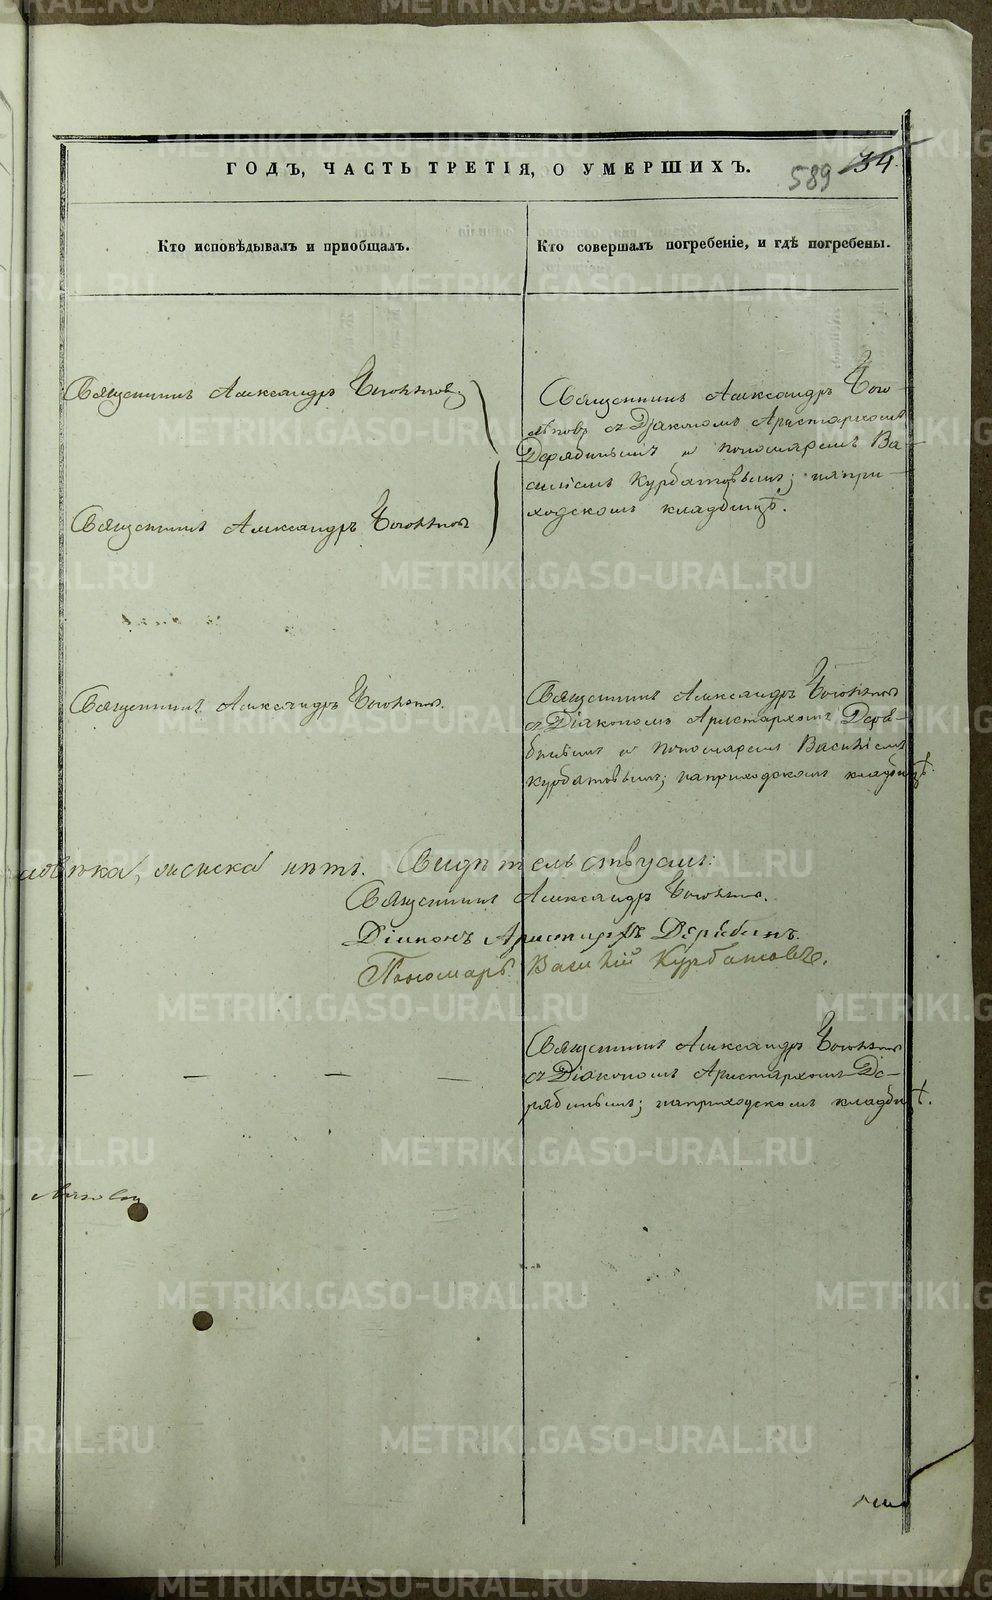 ГОДЪ, ЧАСТЬ ТРЕТІЯ, О УМЕРШИХЪ.
589 34
Кто исповѣдывалъ и приобщалъ.
Кто совершалъ погребеніе, и гдѣ погребены.
Священникъ Александръ
Священникъ Александръ
Священникъ Александръ
съ Діакономъ Аристархомъ
Дерябинымъ и пономаремъ Ва-
силіемъ Курбатовымъ; на при-
ходскомъ кладбищѣ.
Священникъ Александръ
Священникъ Александръ
съ Діакономъ Аристархомъ Деря-
бинымъ и пономаремъ Василіемъ
Курбатовымъ; на приходскомъ кладбищѣ.
женска нѣтъ. Свидѣтельствуемъ:
Священникъ Александръ
Діаконъ Аристархъ Дерябинъ.
Пономарь Василій Курбатовъ.
Священникъ Александръ
съ Діакономъ Аристархомъ Де-
рябинымъ; на приходскомъ кладбищѣ.
METRIKI.GASO-URAL.RU